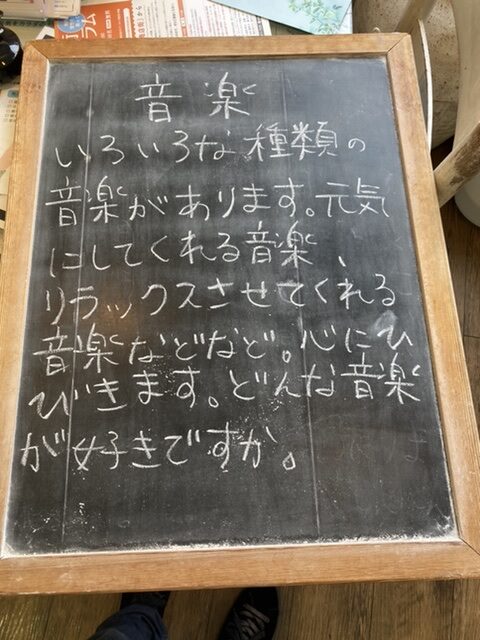 音楽
いろいろな種類の
音楽があります。元気
にしてくれる音楽、
リラックスさせてくれる
音楽などなど。心にひ
びきます。どんな音楽
が好きですか。